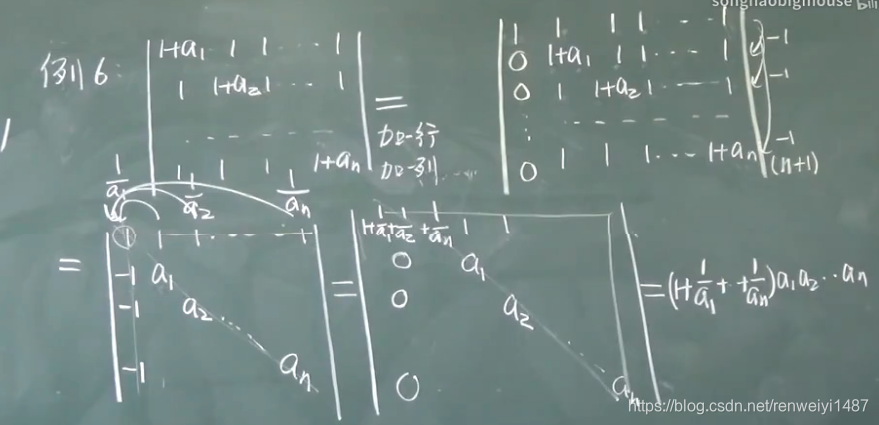 songhaobigmouse bili
例6:
1+a₁ 1 1 ··· 1
1 1+a₂ 1 ··· 1
- - - - - -
1 1 1 1+aₙ
=
加一行
加一列
1 1 1 1 ··· 1
0 1+a₁ 1 1 ··· 1
0 1 1+a₂ 1 ··· 1
⋮ - - - - - -
0 1 1 1 ··· 1+aₙ
-1
-1
-1
(n+1)
1/a₁ 1/a₂ 1/aₙ
=
1 1 1 ··· 1
-1 a₁
-1 a₂ ···
-1 aₙ
=
1+1/a₁+1/a₂ +1/aₙ 1 1
0 a₁
0 a₂
0 aₙ
=(1+1/a₁+··+1/aₙ)a₁a₂··aₙ
https://blog.csdn.net/renweiyi1487